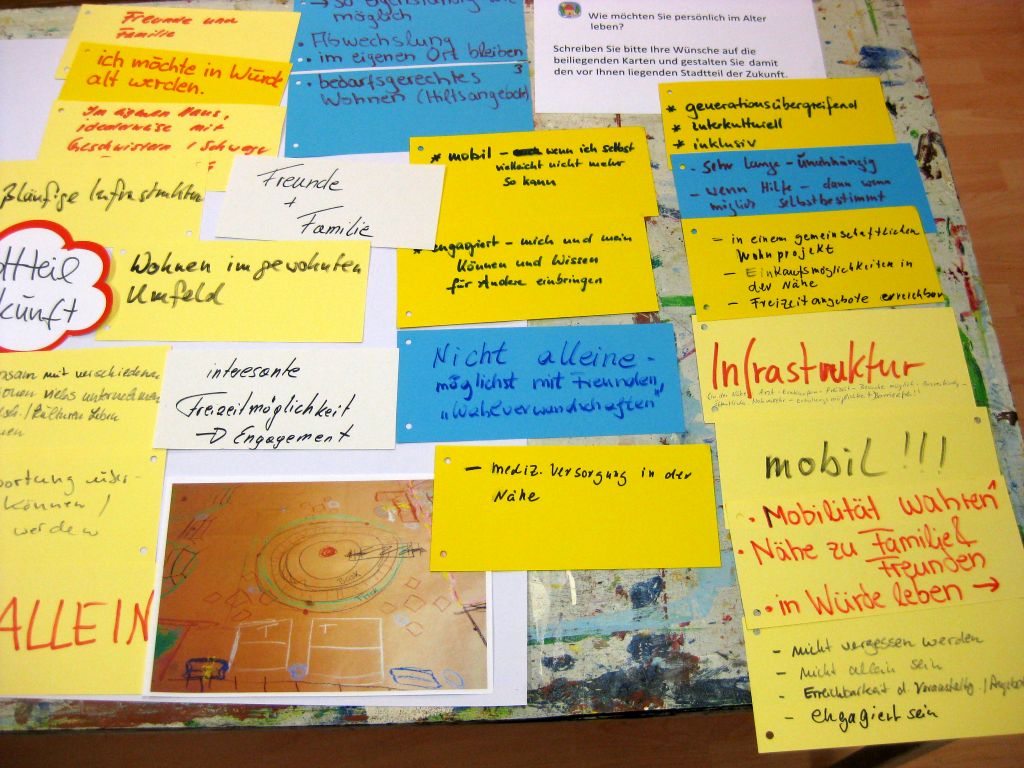 Freunde und
Familie
ich möchte in Würde
alt werden.
Im eigenen Haus,
idealerweise mit
Geschwistern /
Infrastruktur
möglich
• Abwechslung
• im eigenen Ort bleiben
3
• bedarfsgerechtes
Wohnen (Hilfsangebote)
Wie möchten Sie persönlich im Alter
leben?
Schreiben Sie bitte Ihre Wünsche auf die
beiliegenden Karten und gestalten Sie damit
den vor Ihnen liegenden Stadtteil der Zukunft.
Freunde
+
Familie
Wohnen im gewohnten
Umfeld
interesante
Freizeitmöglichkeit
→ Engagement
* mobil – wenn ich selbst
vielleicht nicht mehr
so kann
* engagiert – mich und mein
Können und Wissen
für Andere einbringen
Nicht alleine –
möglichst mit Freunden,
„Wahlverwandschaften"
– mediz. Versorgung in der
Nähe
* generationsübergreifend
* interkulturell
* inklusiv
- sehr lange – Unabhängig
- wenn Hilfe – dann wenn
möglich selbstbestimmt
– in einem gemeinschaftlichen
Wohnprojekt
– Einkaufsmöglichkeiten in
der Nähe
– Freizeitangebote erreichbar
Infrastruktur
mobil!!!
• Mobilität wahren
• Nähe zu Familie &
Freunden
• in Würde leben →
– nicht vergessen werden
– nicht allein sein
– Erreichbarkeit d.
– engagiert sein
mit verschiedenen
unternehmen
können /
werden
ALLEIN